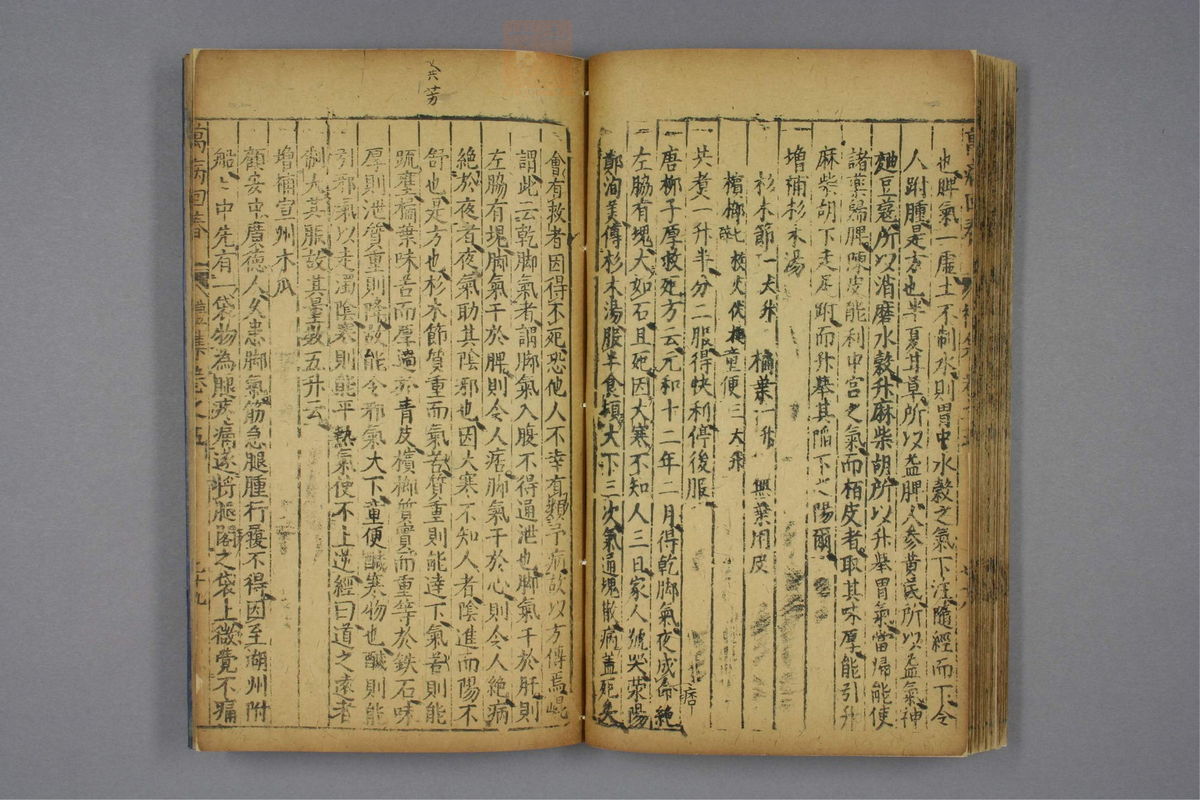 也脾氣一虛土不制水則胃中水穀之氣下注隨經而下令
人跗腫是方也半夏甘草所以益脾人參黃芪所以益氣神
麯豆蔻所以消磨水穀升麻柴胡所以升舉胃氣當歸能使
諸藥歸脾陳皮能利中宮之氣而栢皮者取其味厚能引升
麻柴胡下走足跗而升舉其陷下之陽爾
增補杉木湯
杉木節一大升 橘葉一升 無葉用皮
檳榔七枚火伏 童便三大升
共煮一升半分二服得快利停後服
唐柳子厚救死方云元和十二年二月得乾脚氣夜成痞絕
左脇有塊大如石且死因大寒不知人三日家人號哭荥陽
鄭洵美傳杉木湯服半食頃大下三次氣通塊散病蓋死矣
會有救者因得不死恐他人不幸有類予病故以方傳焉崐
謂此云乾脚氣者謂脚氣入腹不得通泄也脚氣干於肝則
左脇有塊脚氣干於脾則令人痞脚氣干於心則令人絕病
絕於夜者夜氣助其陰邪也因大寒不知人者陰進而陽不
舒也是方也杉木節質重而氣苦質重則能達下氣苦則能
疏壅橘葉味苦而厚過於青皮檳榔質實而重等於鉄石味
厚則泄質重則降故能令邪氣大下童便醎寒物也醎則能
引邪氣以走濁陰寒則能平熱氣使不上逆經曰道之遠者
制大其服故其量數五升云
增補宣州木瓜
顧安中廣德人久患脚氣筋急腿腫行履不得因至湖州附
船船中先有一袋物為腿疼痛遂將腿閣之袋上微覺不痛
萬病回春
禮集卷之五